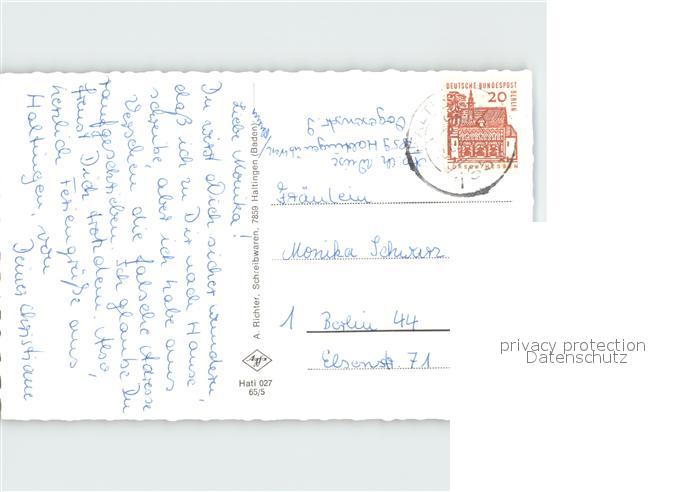 Liebe Monika!
Du wirst Dich sicher wundern,
daß ich zu Dir nach Hause
schreibe aber ich habe aus
Versehen die falsche Adresse
raufgeschrieben. Ich glaube Du
freust Dich trotzdem. Also,
herzlich Feriengrüße aus
Haltingen, von
Deiner Christiane
A. Richter, Schreibwaren, 7859 Haltingen (Baden)
Hati 027
65/5
7859 Haltingen
DEUTSCHE BUNDESPOST
BERLIN
20
LORSCH/HESSEN
Fräulein
Monika Schwarz
1 Berlin 44
Elsenstr. 71
privacy protection
Datenschutz